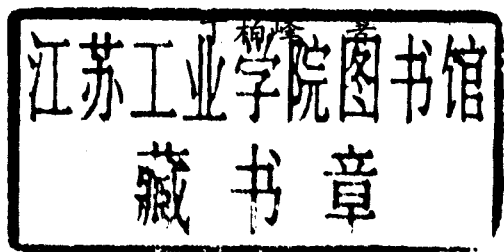 柏峰 著
江苏工业学院图书馆
藏书章